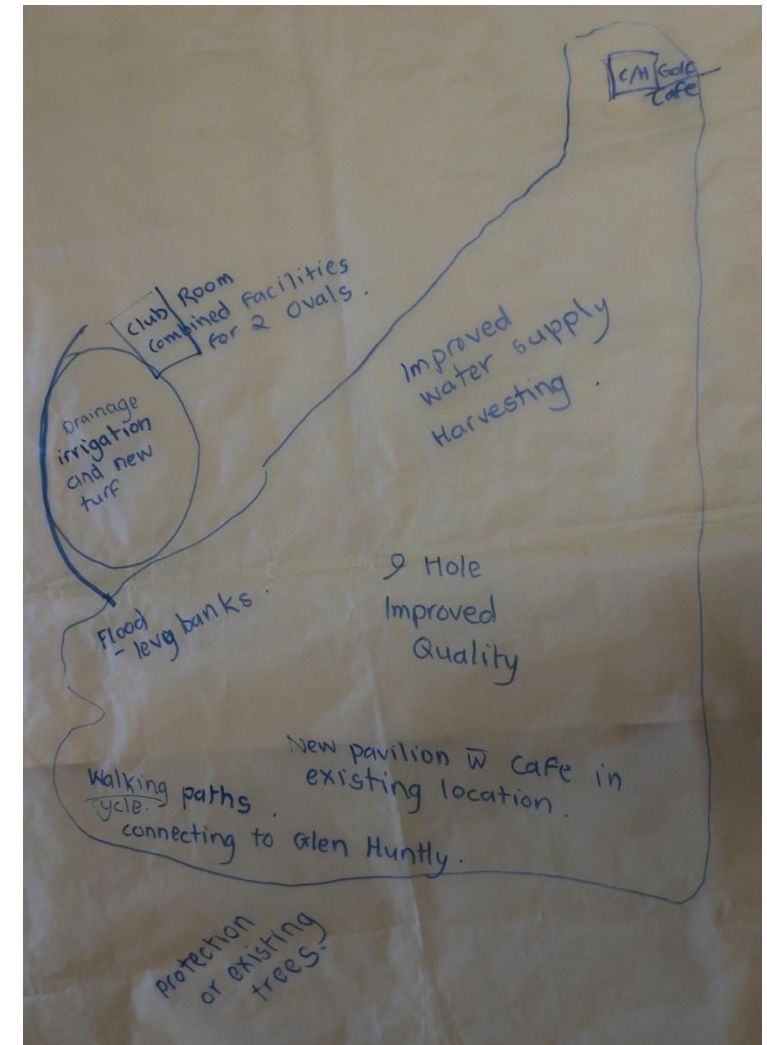 C/H Golf
Cafe
Club Room
combined facilities
for 2 Ovals.
Drainage
irrigation
and new
turf
Improved
water supply
Harvesting.
Flood
- levy banks.
9 Hole
Improved
Quality
New pavilion w̅ cafe in
existing location.
Walking paths.
cycle.
connecting to Glen Huntly.
protection
or existing
trees.